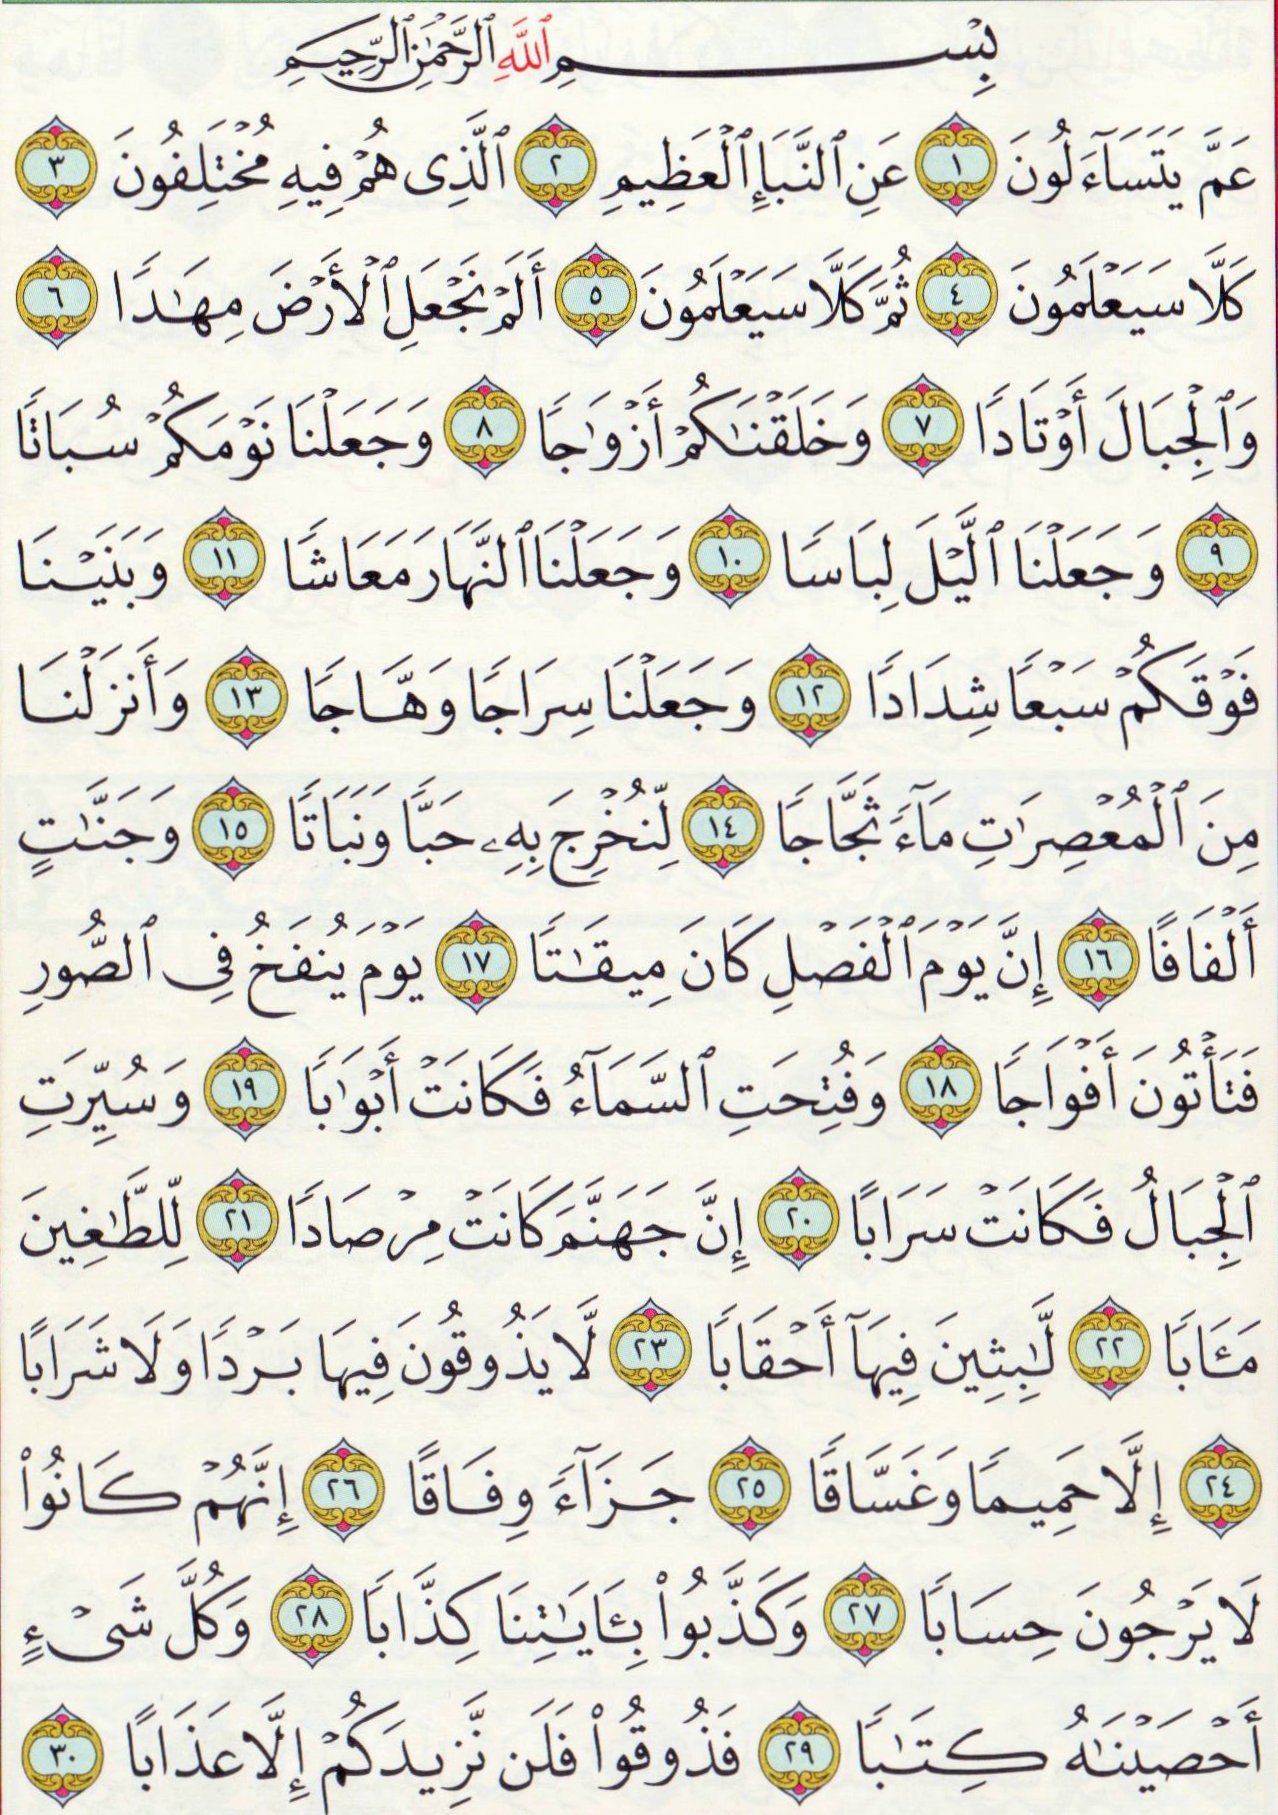 بِسْمِ ٱللَّهِ ٱلرَّحْمَٰنِ ٱلرَّحِيمِ
عَمَّ يَتَسَآءَلُونَ ١ عَنِ ٱلنَّبَإِ ٱلْعَظِيمِ ٢ ٱلَّذِى هُمْ فِيهِ مُخْتَلِفُونَ ٣
كَلَّا سَيَعْلَمُونَ ٤ ثُمَّ كَلَّا سَيَعْلَمُونَ ٥ أَلَمْ نَجْعَلِ ٱلْأَرْضَ مِهَٰدًا ٦
وَٱلْجِبَالَ أَوْتَادًا ٧ وَخَلَقْنَٰكُمْ أَزْوَٰجًا ٨ وَجَعَلْنَا نَوْمَكُمْ سُبَاتًا
٩ وَجَعَلْنَا ٱلَّيْلَ لِبَاسًا ١٠ وَجَعَلْنَا ٱلنَّهَارَ مَعَاشًا ١١ وَبَنَيْنَا
فَوْقَكُمْ سَبْعًا شِدَادًا ١٢ وَجَعَلْنَا سِرَاجًا وَهَّاجًا ١٣ وَأَنزَلْنَا
مِنَ ٱلْمُعْصِرَٰتِ مَآءً ثَجَّاجًا ١٤ لِّنُخْرِجَ بِهِۦ حَبًّا وَنَبَاتًا ١٥ وَجَنَّٰتٍ
أَلْفَافًا ١٦ إِنَّ يَوْمَ ٱلْفَصْلِ كَانَ مِيقَٰتًا ١٧ يَوْمَ يُنفَخُ فِى ٱلصُّورِ
فَتَأْتُونَ أَفْوَاجًا ١٨ وَفُتِحَتِ ٱلسَّمَآءُ فَكَانَتْ أَبْوَٰبًا ١٩ وَسُيِّرَتِ
ٱلْجِبَالُ فَكَانَتْ سَرَابًا ٢٠ إِنَّ جَهَنَّمَ كَانَتْ مِرْصَادًا ٢١ لِّلطَّٰغِينَ
مَـَٔابًا ٢٢ لَّٰبِثِينَ فِيهَآ أَحْقَابًا ٢٣ لَّا يَذُوقُونَ فِيهَا بَرْدًا وَلَا شَرَابًا
٢٤ إِلَّا حَمِيمًا وَغَسَّاقًا ٢٥ جَزَآءً وِفَاقًا ٢٦ إِنَّهُمْ كَانُوا۟
لَا يَرْجُونَ حِسَابًا ٢٧ وَكَذَّبُوا۟ بِـَٔايَٰتِنَا كِذَّابًا ٢٨ وَكُلَّ شَىْءٍ
أَحْصَيْنَٰهُ كِتَٰبًا ٢٩ فَذُوقُوا۟ فَلَن نَّزِيدَكُمْ إِلَّا عَذَابًا ٣٠